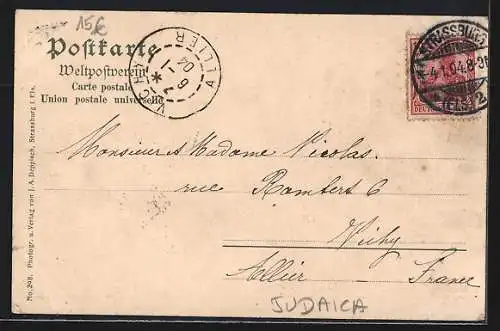 15€
Postkarte
Weltpostverein
Carte postale
Union postale universelle
VICHY
ALLIER
6-1
04
STRASSBURG
4.1.04.8-9
(ELS) 2
Monsieur et Madame Nicolas.
rue Rambert 6
Vichy
Allier - France
JUDAICA
No. 298. Photogr. u. Verlag von J. A. Deppisch, Strassburg i. Els.